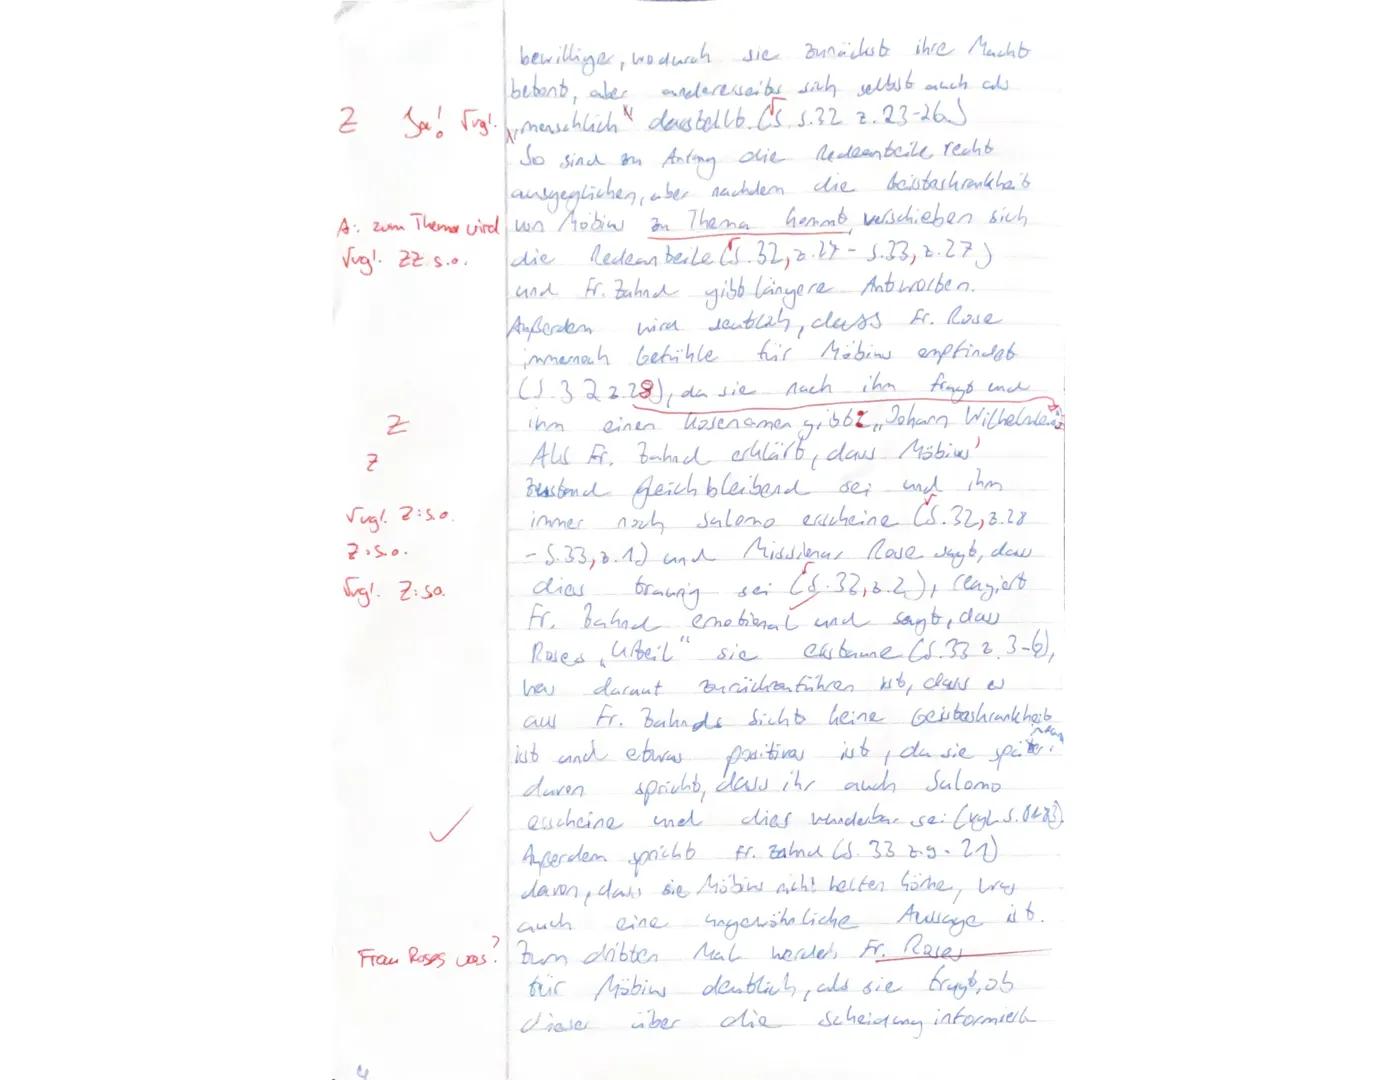 bewilligt, wodurch sie zunächst ihre Macht
betont, aber andererseits sich selbst auch als
Z Ja! √vgl. „menschlich" darstellt. (S. S.32 z.23-26)
So sind zu Anfang die Redeanteile recht
ausgeglichen, aber nachdem die Geisteskrankheit
A: zum Thema wird von Möbius zu Thema kommt, verschieben sich
√vgl. ZZ s.o. die Redeanteile (S.32, z.27 - S.33, z.27)
und Fr. Zahnd gibt längere Antworten.
Außerdem wird deutlich, dass Fr. Rose
immernoch Gefühle für Möbius empfindet
(S.32 z.28), da sie nach ihm fragt und
Z ihm einen Kosenamen gibt: „Johann Wilhelmlein"
Z Als Fr. Zahnd erklärt, dass Möbius'
Zustand gleichbleibend sei und ihm
√vgl. Z: s.o. immer noch Salomo erscheine (S.32, z.28
Z: s.o. - S.33, z.1) und Missionar Rose sagt, dass
√vgl. Z: so. dies traurig sei (S.33, z.2), reagiert
Fr. Zahnd emotional und sagt, dass
Roses „Urteil" sie erstaune (S.33 z.3-6),
was darauf zurückzuführen ist, dass es
aus Fr. Zahnds Sicht keine Geisteskrankheit
ist und etwas positives ist, da sie später
davon spricht, dass ihr auch Salomo
erscheine und dies wunderbar sei (vgl. S.
Außerdem spricht Fr. Zahnd (S.33 z.9-21)
davon, dass sie Möbius nicht heilen könne, was
auch eine ungewöhnliche Aussage ist.
Frau Roses was? Zum dritten Mal werden Fr. Roses
für Möbius deutlich, als sie fragt, ob
dieser über die Scheidung informiert
4